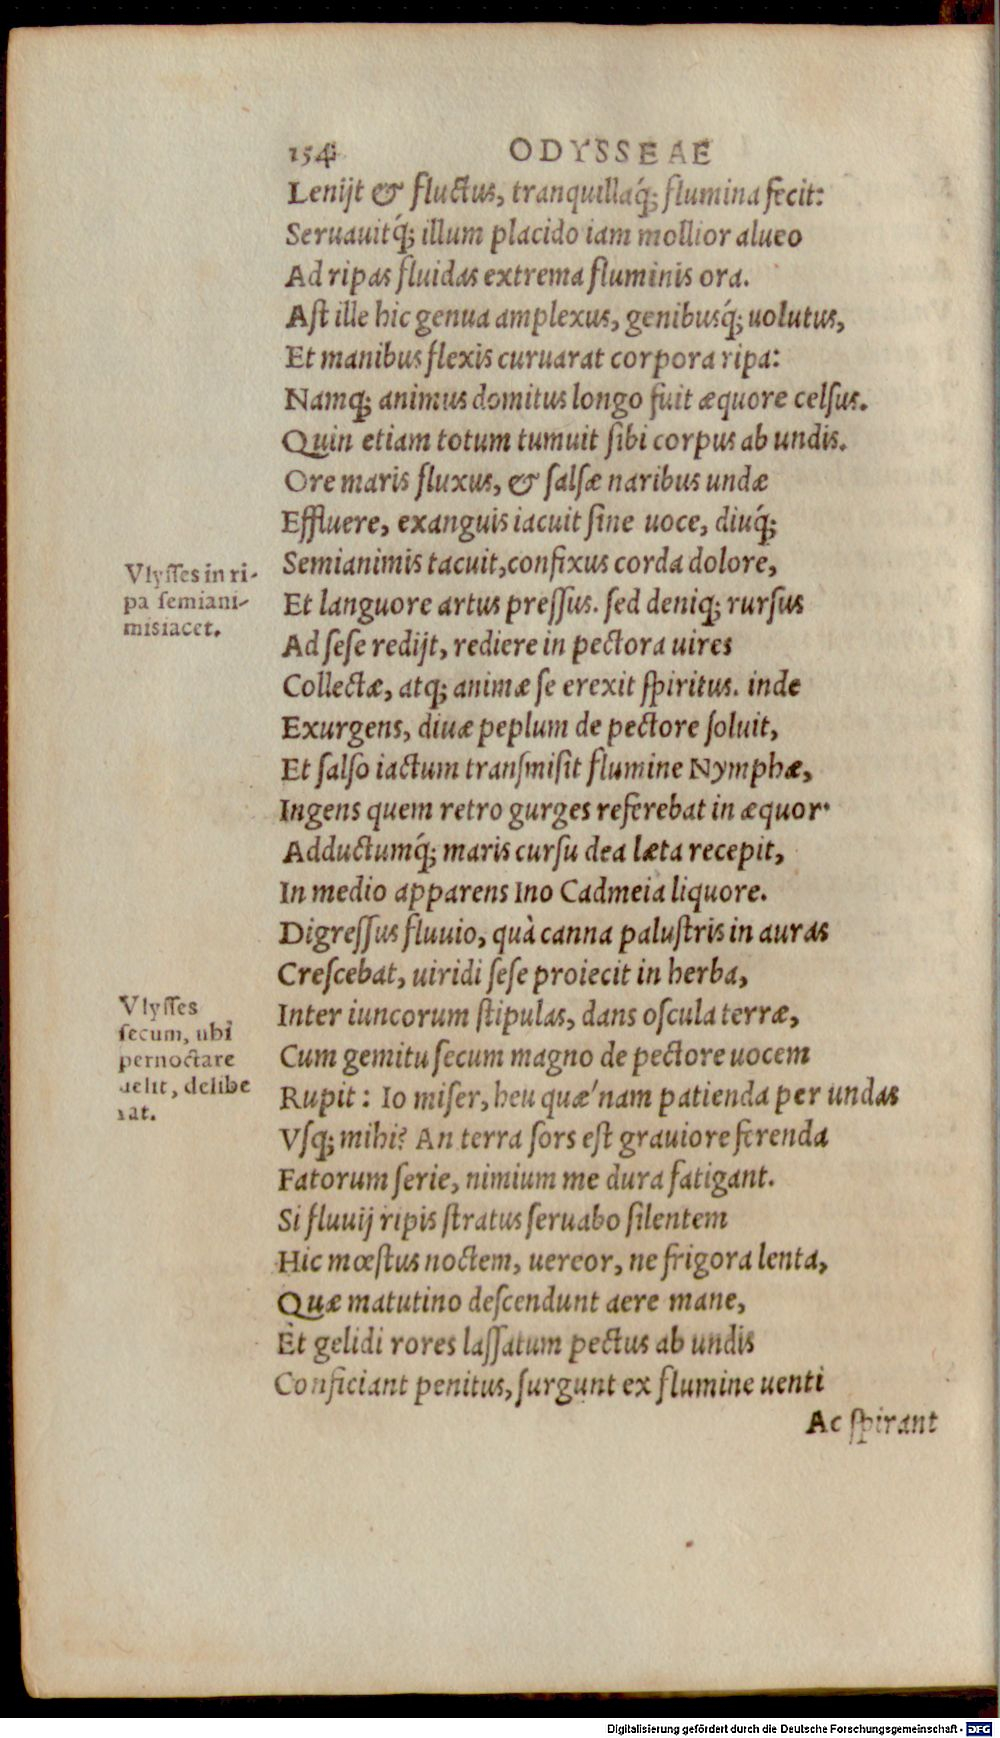 154 ODYSSEAE
Lenijt & fluctus, tranquillaq́; flumina fecit:
Seruauitq́; illum placido iam mollior alueo
Ad ripas fluidas extrema fluminis ora.
Aſt ille hic genua amplexus, genibusq́; uolutus,
Et manibus flexis curuarat corpora ripa:
Namq; animus domitus longo fuit æquore celſus.
Quin etiam totum tumuit ſibi corpus ab undis.
Ore maris fluxus, & ſalſæ naribus undæ
Effluere, exanguis iacuit ſine uoce, diuq́;
Vlyſſes in ri-
pa ſemiani-
misiacet.
Semianimis tacuit, confixus corda dolore,
Et languore artus preſſus. ſed deniq; rurſus
Ad ſeſe redijt, rediere in pectora uires
Collectæ, atq; animæ ſe erexit ſpiritus. inde
Exurgens, diuæ peplum de pectore ſoluit,
Et ſalſo iactum tranſmiſit flumine Nymphæ,
Ingens quem retro gurges referebat in æquor.
Adductumq́; maris curſu dea læta recepit,
In medio apparens Ino Cadmeia liquore.
Digreſſus fluuio, quà canna paluſtris in auras
Creſcebat, uiridi ſeſe proiecit in herba,
Vlyſſes
ſecum, ubi
pernoctare
uelit, delibe
rat.
Inter iuncorum ſtipulas, dans oſcula terræ,
Cum gemitu ſecum magno de pectore uocem
Rupit: Io miſer, heu quæ'nam patienda per undas
Vſq; mihi? An terra ſors eſt grauiore ferenda
Fatorum ſerie, nimium me dura fatigant.
Si fluuij ripis ſtratus ſeruabo ſilentem
Hic mœſtus noctem, uereor, ne frigora lenta,
Quæ matutino deſcendunt aere mane,
Et gelidi rores laſſatum pectus ab undis
Conficiant penitus, ſurgunt ex flumine uenti
Ac ſpirant
Digitalisierung gefördert durch die Deutsche Forschungsgemeinschaft - DFG